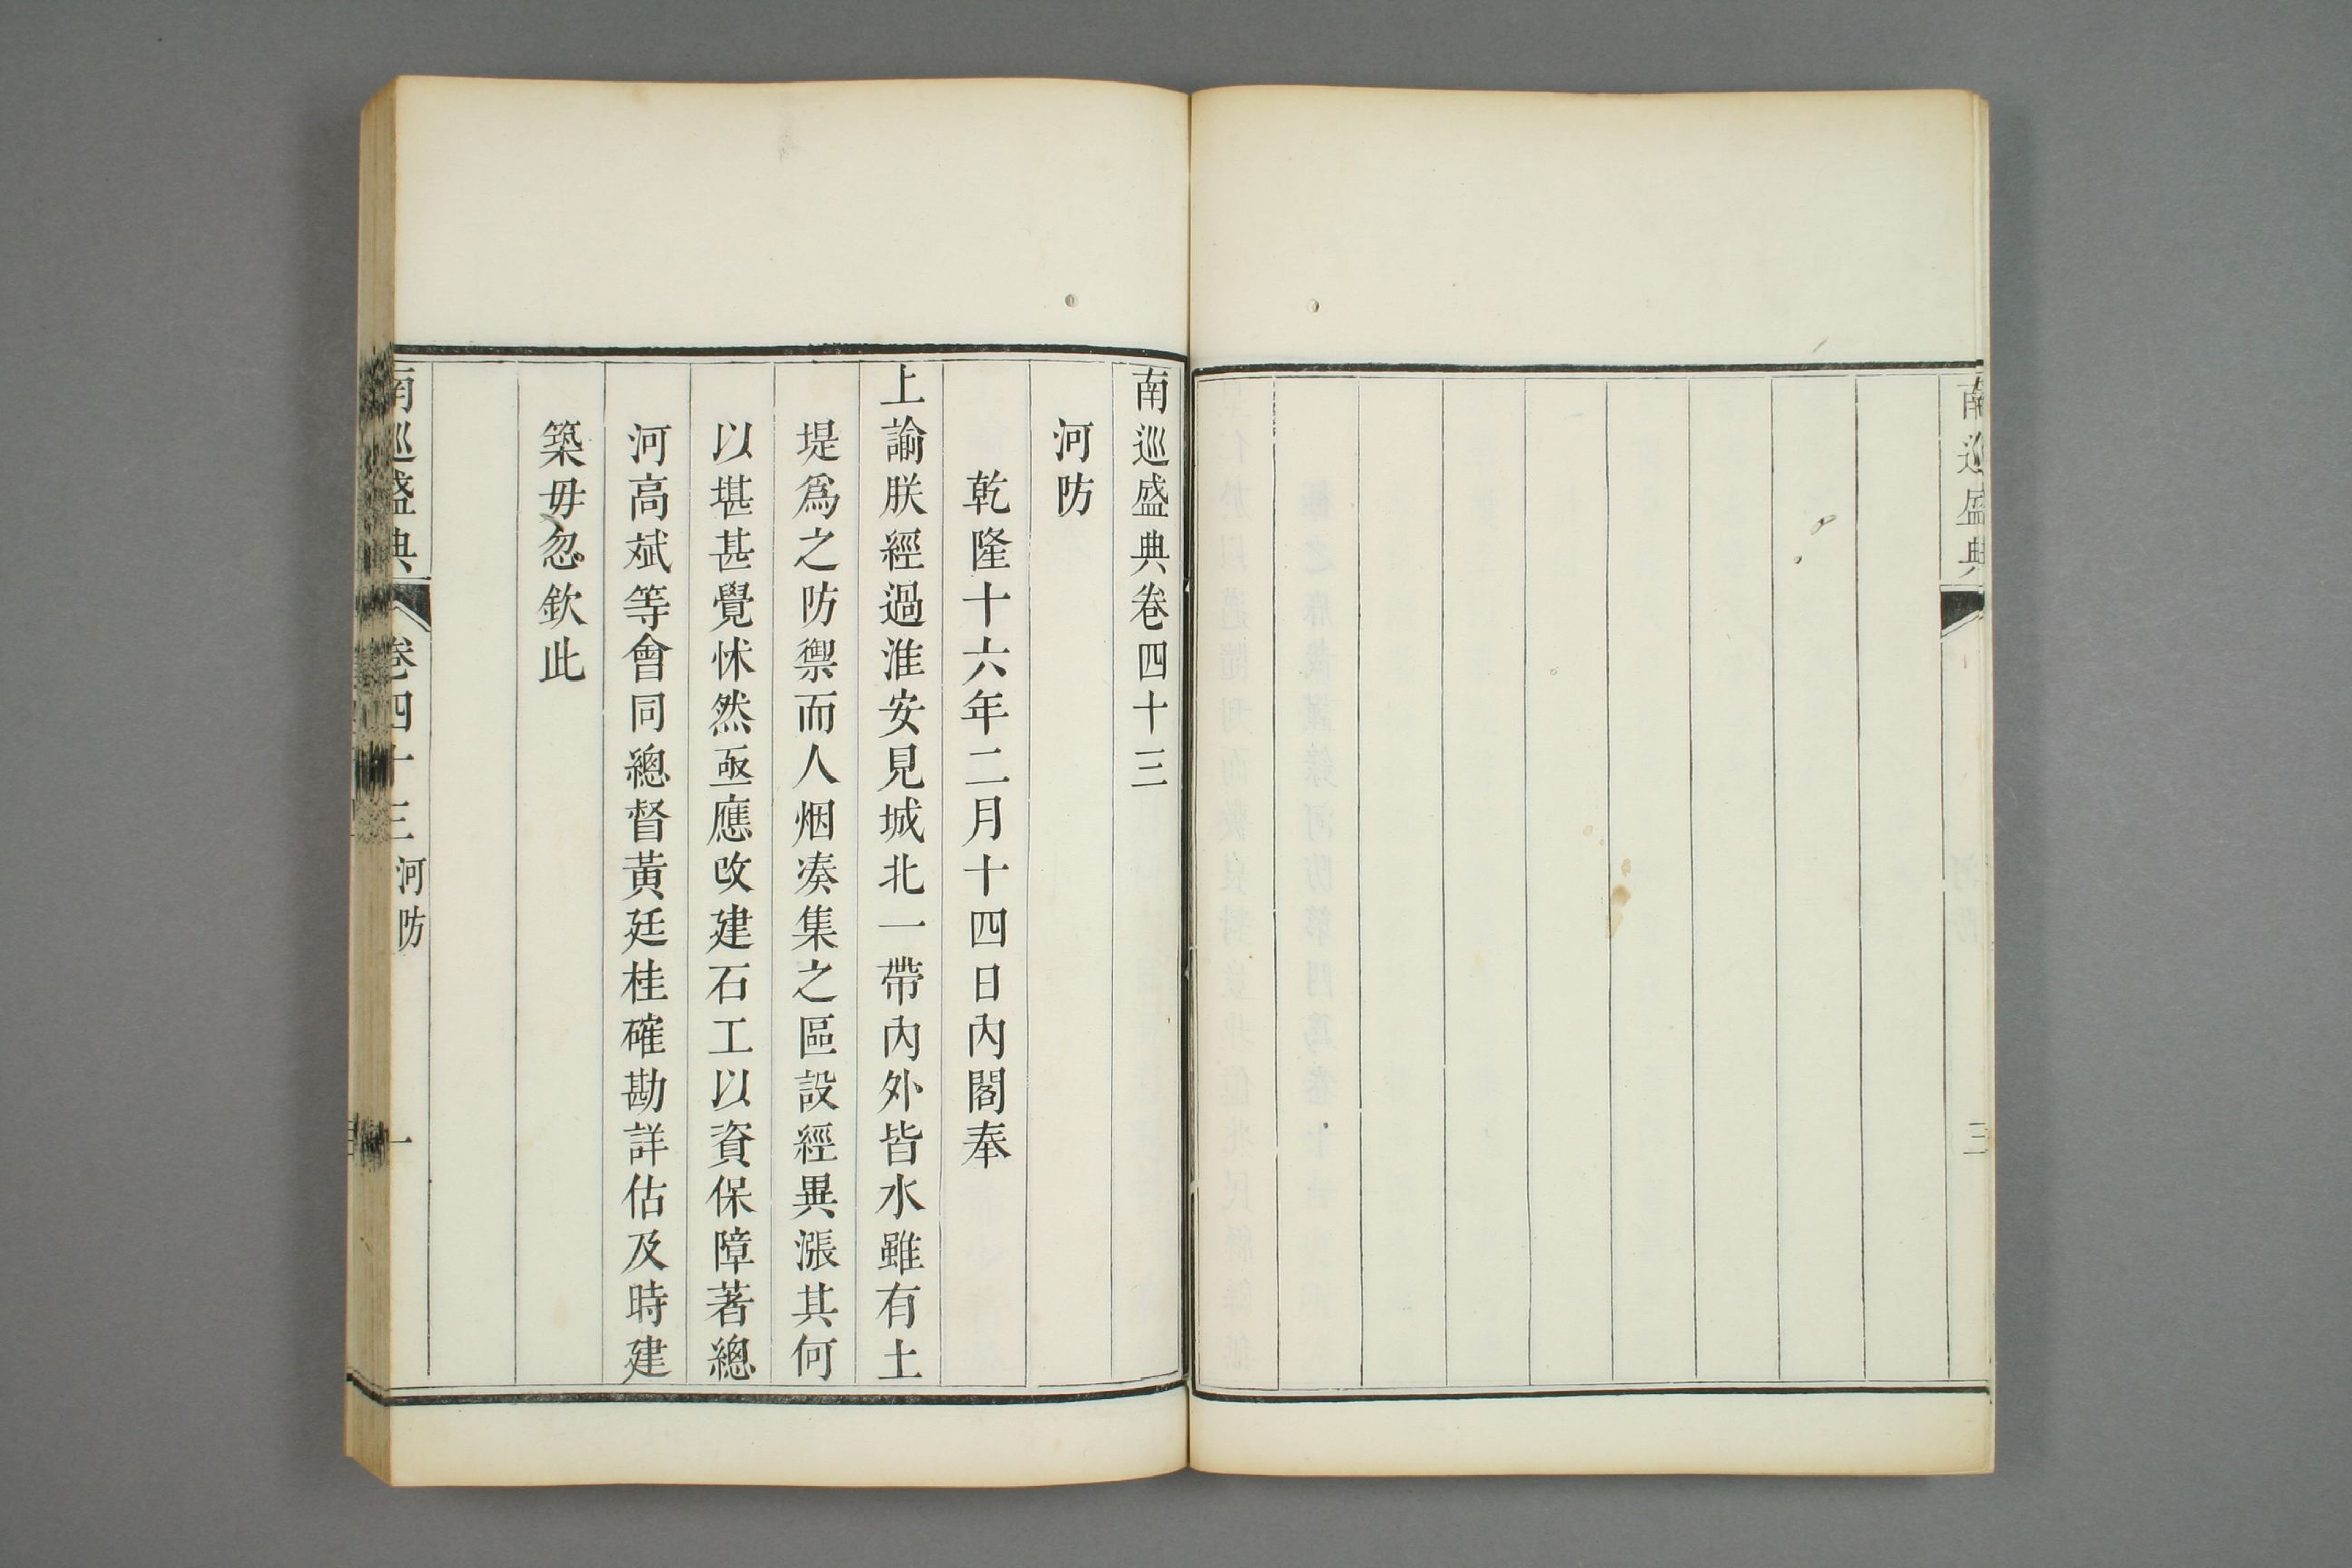 南巡盛典
三
南巡盛典卷四十三
河防
乾隆十六年二月十四日內閣奉
上諭朕經過淮安見城北一帶內外皆水雖有土
堤爲之防禦而人烟凑集之區設經異漲其何
以堪甚覺怵然亟應改建石工以資保障著總
河高斌等會同總督黃廷桂確勘詳估及時建
築毋忽欽此
南巡盛典
卷四十三
河防
一